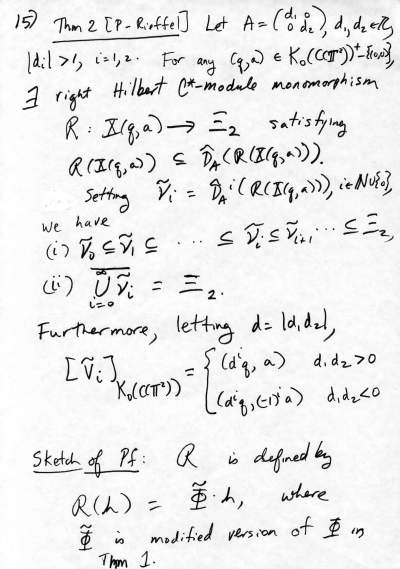 15) Thm 2 [P-Rieffel] Let A = (d₁ 0 0 d₂), d₁, d₂ ∈ ℤ,
|dᵢ| > 1, i = 1, 2. For any (q, a) ∈ K₀(C(𝕋²))⁺ - {(0,0)},
∃ right Hilbert C*-module monomorphism
R : X(q, a) → Ξ₂ satisfying
R(X(q, a)) ⊆ D̂_A(R(X(q, a))).
Setting Ṽᵢ = D̂_Aⁱ(R(X(q, a))), i ∈ ℕ∪{0},
we have
(i) Ṽ₀ ⊆ Ṽ₁ ⊆ ··· ⊆ Ṽᵢ ⊆ Ṽᵢ₊₁ ··· ⊆ Ξ₂,
(ii) \overline{⋃_{i=0}^{∞} Ṽᵢ} = Ξ₂.
Furthermore, letting d = |d₁d₂|,
[Ṽᵢ]_{K₀(C(𝕋²))} = { (dⁱq, a) d₁d₂ > 0
(dⁱq, (-1)ⁱa) d₁d₂ < 0
Sketch of Pf: R is defined by
R(h) = Φ̃ · h, where
Φ̃ is modified version of Φ in
Thm 1.